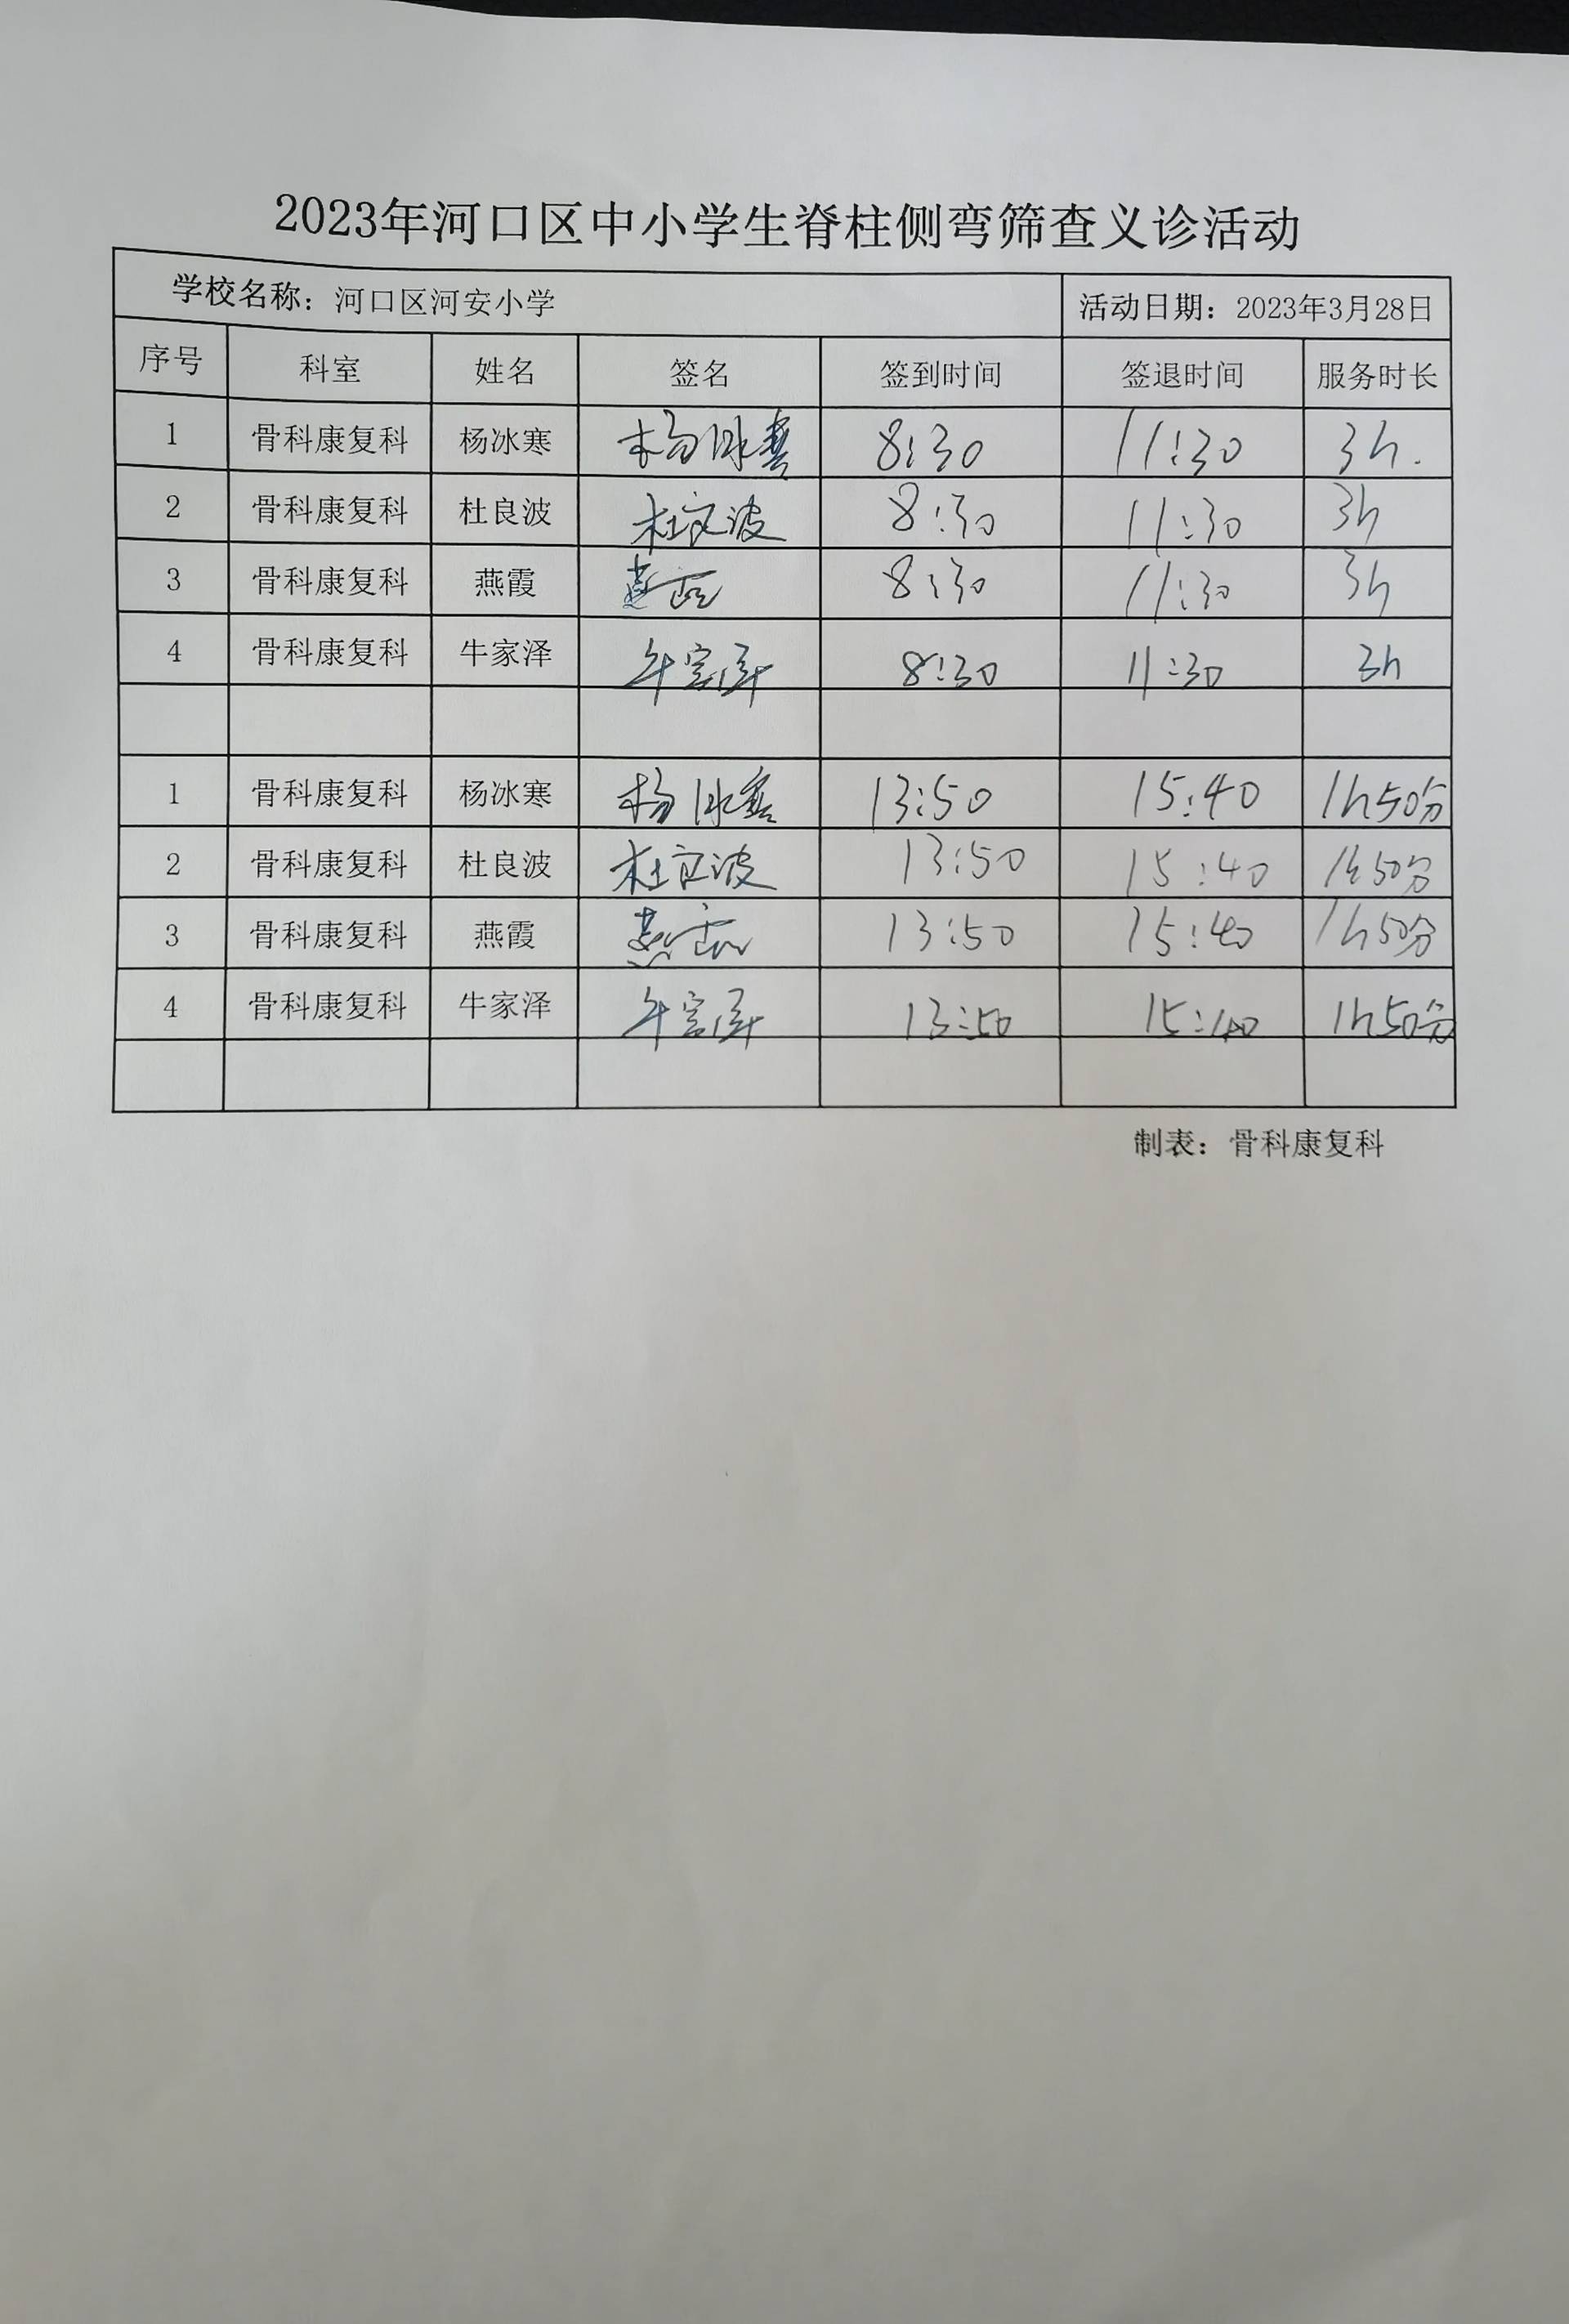 2023年河口区中小学生脊柱侧弯筛查义诊活动
学校名称：河口区河安小学 活动日期：2023年3月28日
序号 科室 姓名 签名 签到时间 签退时间 服务时长
1 骨科康复科 杨冰寒 杨冰寒 8:30 11:30 3h.
2 骨科康复科 杜良波 杜良波 8:30 11:30 3h
3 骨科康复科 燕霞 燕霞 8:30 11:30 3h
4 骨科康复科 牛家泽 牛家泽 8:30 11:30 3h
1 骨科康复科 杨冰寒 杨冰寒 13:50 15:40 1h50分
2 骨科康复科 杜良波 杜良波 13:50 15:40 1h50分
3 骨科康复科 燕霞 燕霞 13:50 15:40 1h50分
4 骨科康复科 牛家泽 牛家泽 13:50 15:40 1h50分
制表：骨科康复科